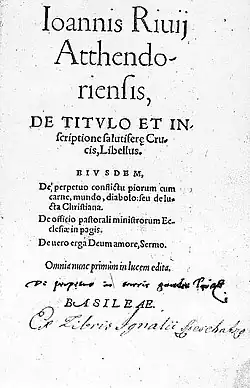 Ioannis Riuij
Atthendo-
riensis,
DE TITVLO ET IN-
scriptione salutiferę Cru-
cis, Libellus.
EIVSDEM,
De perpetuo conflictu piorum cum
carne, mundo, diabolo: seu de lu-
cta Christiana.
De officio pastorali ministrorum Ec-
clesiæ in pagis.
De uero ergà Deum amore, Sermo.
Omnia nunc primùm in lucem edita.
BASILEAE.
Ex Libris Ignatii